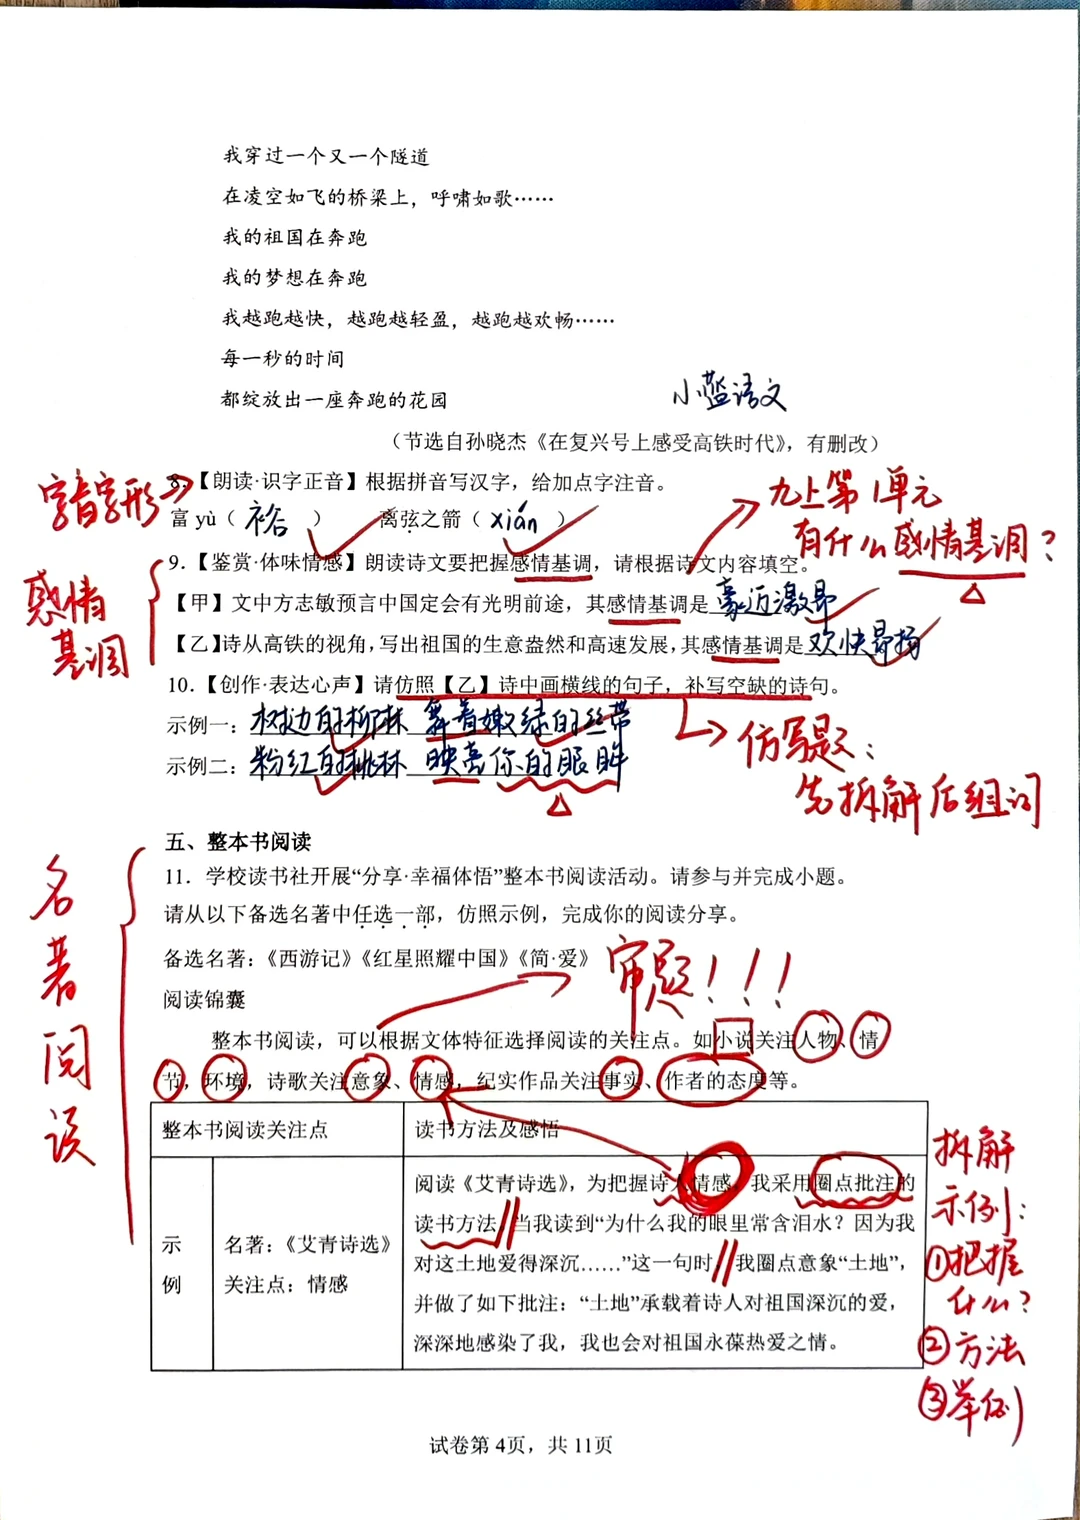 我穿过一个又一个隧道
在凌空如飞的桥梁上，呼啸如歌……
我的祖国在奔跑
我的梦想在奔跑
我越跑越快，越跑越轻盈，越跑越欢畅……
每一秒的时间
都绽放出一座奔跑的花园
小蓝语文
（节选自孙晓杰《在复兴号上感受高铁时代》，有删改）
字音字形
8.【朗读·识字正音】根据拼音写汉字，给加点字注音。
富 yù（裕）　离弦之箭（xián）
九上第1单元
有什么感情基调？
感情
基调
9.【鉴赏·体味情感】朗读诗文要把握感情基调，请根据诗文内容填空。
【甲】文中方志敏预言中国定会有光明前途，其感情基调是豪迈激昂
【乙】诗从高铁的视角，写出祖国的生意盎然和高速发展，其感情基调是欢快昂扬
10.【创作·表达心声】请仿照【乙】诗中画横线的句子，补写空缺的诗句。
示例一：村边的柳林 舞着嫩绿的丝带
示例二：粉红的桃林 映亮你的眼眸
仿写题：
先拆解后组词
名著阅读
五、整本书阅读
11．学校读书社开展“分享·幸福体悟”整本书阅读活动。请参与并完成小题。
请从以下备选名著中任选一部，仿照示例，完成你的阅读分享。
备选名著：《西游记》《红星照耀中国》《简·爱》
审题！！！
阅读锦囊
整本书阅读，可以根据文体特征选择阅读的关注点。如小说关注人物、情
节，环境，诗歌关注意象、情感，纪实作品关注事实、作者的态度等。
整本书阅读关注点
读书方法及感悟
示
例
名著：《艾青诗选》
关注点：情感
阅读《艾青诗选》，为把握诗人情感，我采用圈点批注的
读书方法。当我读到“为什么我的眼里常含泪水？因为我
对这土地爱得深沉……”这一句时，我圈点意象“土地”，
并做了如下批注：“土地”承载着诗人对祖国深沉的爱，
深深地感染了我，我也会对祖国永葆热爱之情。
拆解
示例：
①把握
什么？
②方法
③举例
试卷第 4页，共 11页